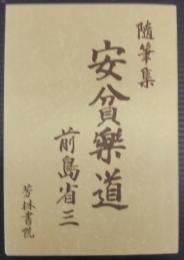 随筆集
安貧楽道
前島省三
芳林書院